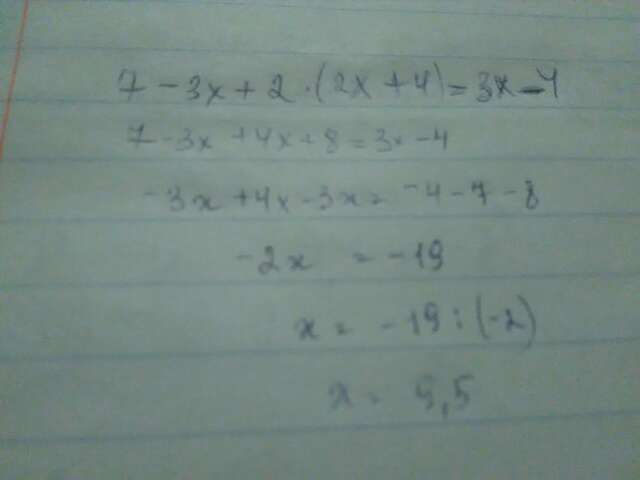 7 - 3x + 2 · (2x + 4) = 3x - 4
7 - 3x + 4x + 8 = 3x - 4
- 3x + 4x - 3x = - 4 - 7 - 8
- 2x = - 19
x = - 19 : (-2)
x = 9,5